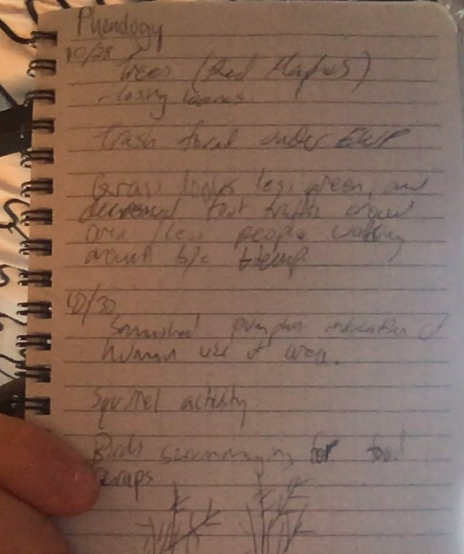 Phenology
10/28
Trees (Red Maples)
- losing leaves
Trash found under EWP
Grass looks less green, and
decreased foot traffic around
area / less people walking
around b/c temp
10/30
Smashed pumpkin indication of
human use of area.
Squirrel activity
Birds scrummaging for food
scraps